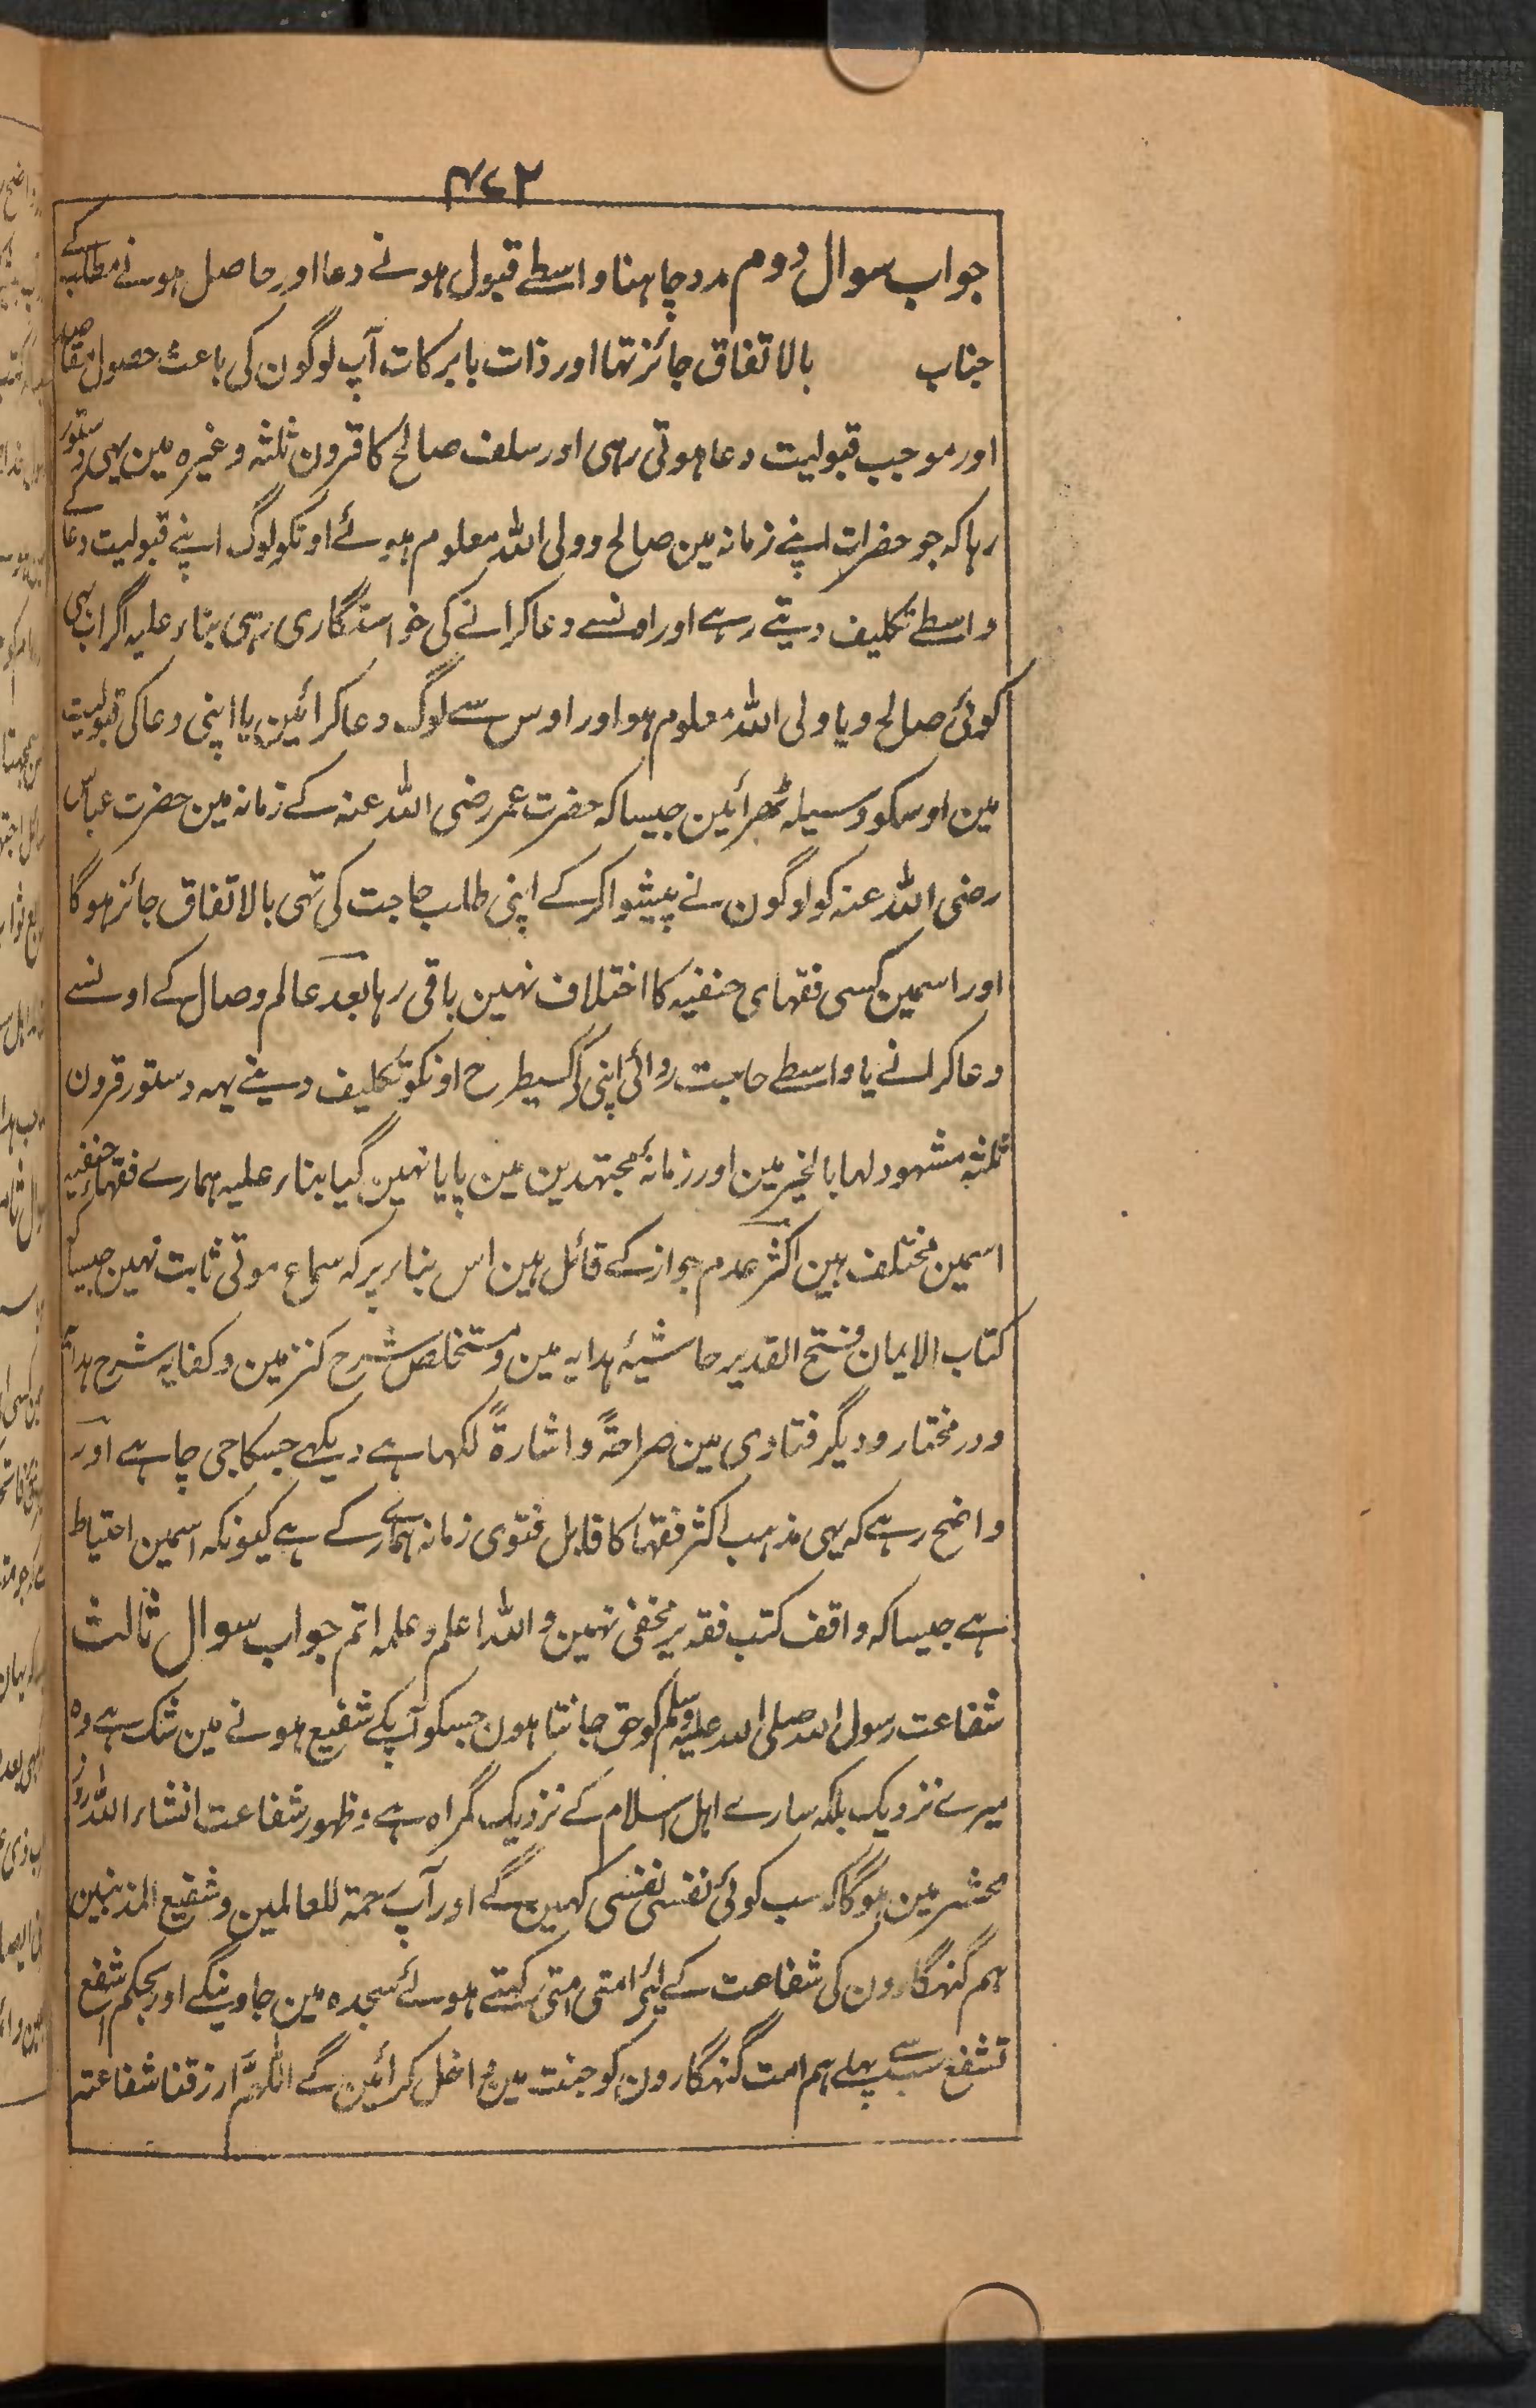 ۴۷۲
جواب سوال دوم مدد چاہنا واسطے قبول ہونے دعا اور حاصل ہونے مطلب کے
جناب بالاتفاق جائز تہا اور ذات بابرکات آپ لوگون کی باعث حصول مقاصد
اور موجب قبولیت دعا ہوتی رہی اور سلف صالح کا قرون ثلثہ وغیرہ مین یہی دستور
رہا کہ جو حضرات اپنے زمانہ مین صالح و ولی اللہ معلوم ہوئے اونکو لوگ اپنے قبولیت دعا کے
واسطے تکلیف دیتے رہے اور اونسے دعا کرانے کی خواستگاری رہی بناء علیہ اگر اب بہی
کوئی صالح و یا ولی اللہ معلوم ہو اور اوس سے لوگ دعا کرائین یا اپنی دعا کی قبولیت
مین اوسکو وسیلہ ٹھرائین جیسا کہ حضرت عمر رضی اللہ عنہ کے زمانہ مین حضرت عباس
رضی اللہ عنہ کو لوگون نے پیشوا کرکے اپنی طلب حاجت کی تہی بالاتفاق جائز ہوگا
اور اسمین کسی فقہای حنفیہ کا اختلاف نہین باقی رہا بعد عالم وصال کے اونسے
دعا کرانے یا واسطے حاجت روائی اپنی کے کسیطرح اونکو تکلیف دینے یہہ دستور قرون
ثلثہ مشہود لہا بالخیر مین اور زمانۂ مجتہدین مین پایا نہین گیا بناء علیہ ہمارے فقہاء حنفیہ
اسمین مختلف ہین اکثر عدم جواز کے قائل ہین اس بناء پر کہ سماع موتی ثابت نہین جیسا
کتاب الایمان فتح القدیر حاشیۂ ہدایہ مین و مستخلص شرح کنز مین و کفایہ شرح ہدایہ
و در مختار و دیگر فتاوی مین صراحۃً و اشارۃً لکہا ہے دیکہے جسکا جی چاہے اور
واضح رہے کہ یہی مذہب اکثر فقہا کا قابل فتوی زمانہ ہمارے کے ہے کیونکہ اسمین احتیاط
ہے جیسا کہ واقف کتب فقہ پر مخفی نہین واللہ اعلم و علمہ اتم جواب سوال ثالث
شفاعت رسول اللہ صلی اللہ علیہ وسلم کو حق جانتا ہون جسکو آپکے شفیع ہونے مین شک ہے وہ
میرے نزدیک بلکہ سارے اہل اسلام کے نزدیک گمراہ ہے و ظہور شفاعت انشاء اللہ روز
محشر مین ہوگا کہ سب کوئی نفسی نفسی کہین گے اور آپ رحمۃ للعالمین و شفیع المذنبین
ہم گنہگارون کی شفاعت کے لئے امتی امتی کہتے ہوئے سجدہ مین جاوینگے اور بحکم اشفع
تشفع سب سے پہلے ہم امت گنہگارون کو جنت مین داخل کرائین گے اللہم ارزقنا شفاعتہ